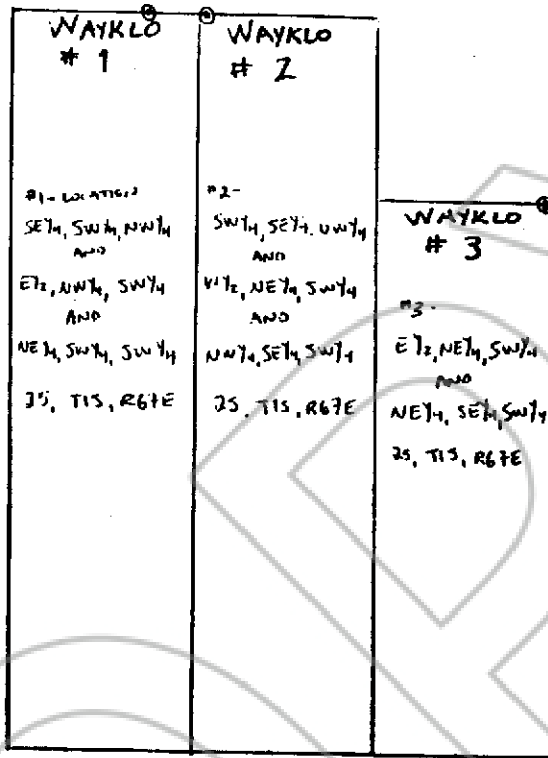 WAYKLO
# 1
#1- LOCATION
SE¼, SW¼, NW¼
AND
E½, NW¼, SW¼
AND
NE¼, SW¼, SW¼
25, T1S, R67E
WAYKLO
# 2
#2-
SW¼, SE¼, NW¼
AND
W½, NE¼, SW¼
AND
NW¼, SE¼, SW¼
25, T1S, R67E
WAYKLO
# 3
#3-
E½, NE¼, SW¼
AND
NE¼, SE¼, SW¼
25, T1S, R67E